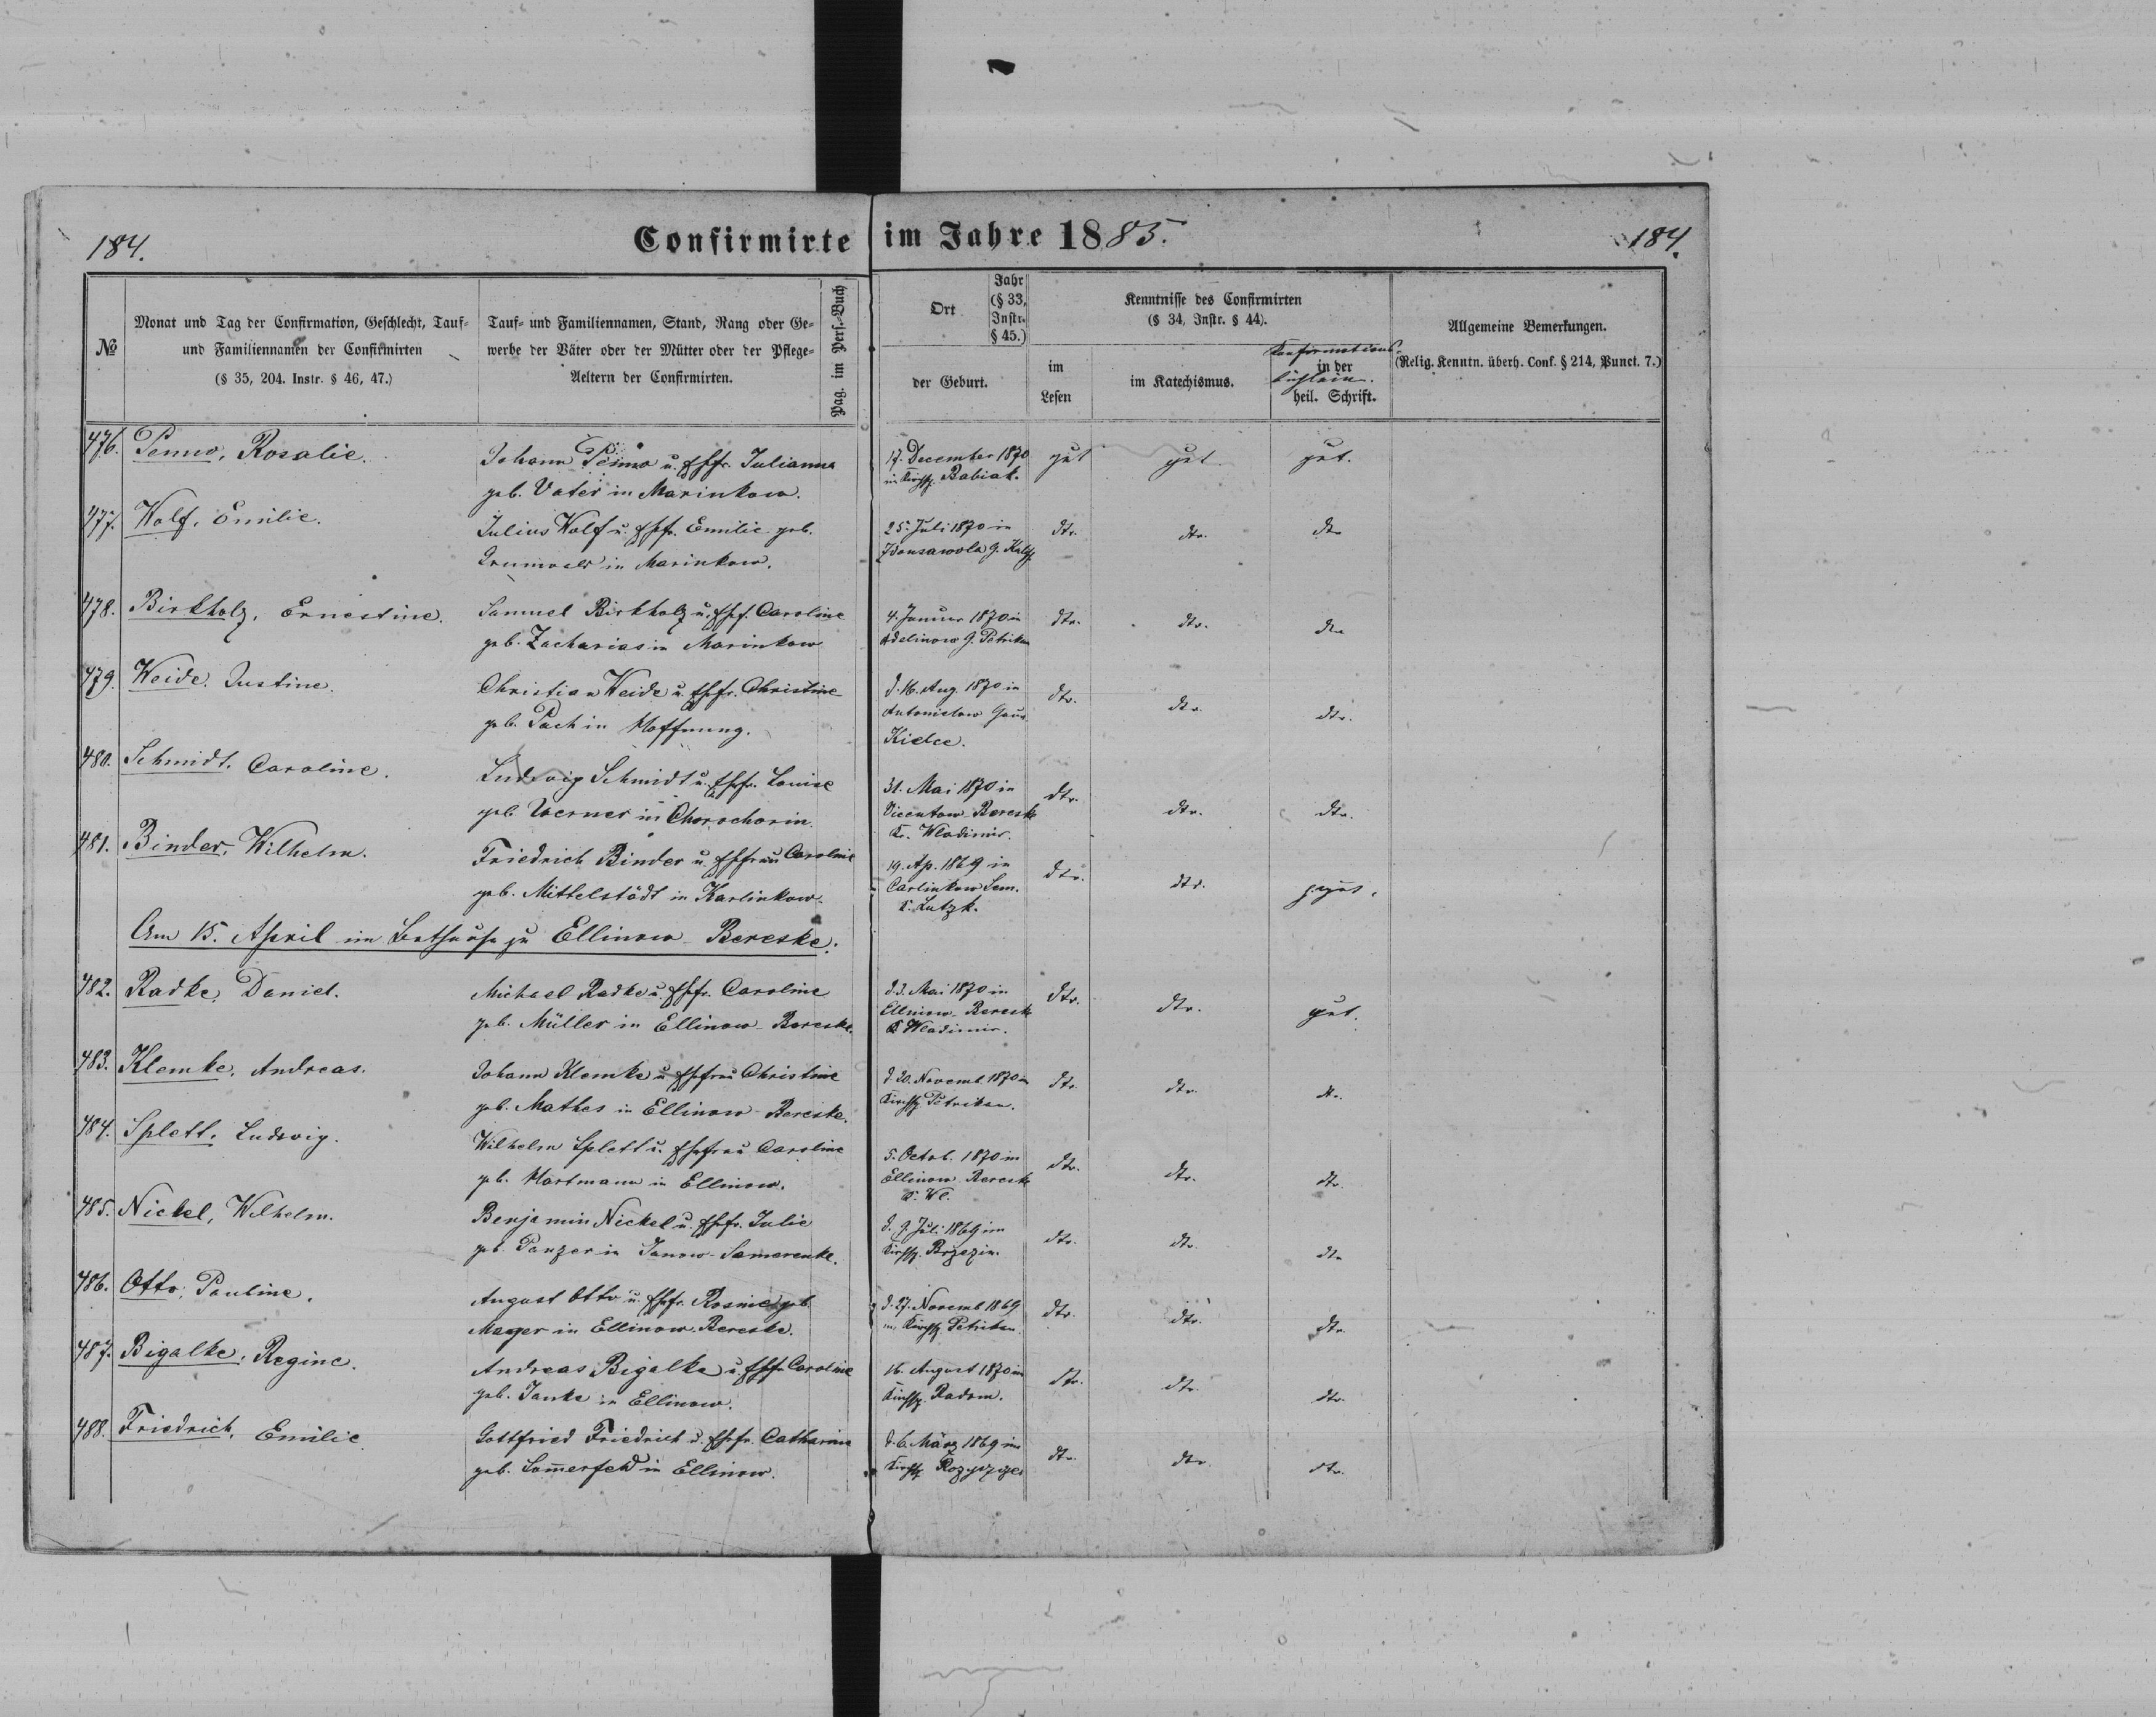 184.
Confirmirte im Jahre 1885.
184.
№
Monat und Tag der Confirmation, Geschlecht, Tauf-
und Familiennamen der Confirmirten
(§ 35, 204. Instr. § 46, 47.)
Tauf- und Familiennamen, Stand, Rang oder Ge-
werbe der Väter oder der Mütter oder der Pflege-
Aeltern der Confirmirten.
Pag. im Pers.-Buch
Ort
Jahr
(§ 33,
Instr.
§ 45.)
der Geburt.
Kenntnisse des Confirmirten
(§ 34, Instr. § 44).
im
Lesen
im Katechismus.
Konfirmations
in der
büchlein.
heil. Schrift.
Allgemeine Bemerkungen.
(Relig. Kenntn. überh. Conf. § 214, Punct. 7.)
476. Penno, Rosalie.
Johann Penno u. Ehfr. Julianna
geb. Vater in Marinkow.
17. December 1870
im Kirchsp. Babiak.
gut gut gut.
477. Wolf, Emilie.
Julius Wolf u. Ehfr. Emilie geb.
in Marinkow.
25. Juli 1870 in
Zdunsawola G. Kalisch
dto. dto. dto
478. Birkholz, Ernestine.
Samuel Birkholz u. Ehf. Caroline
geb. Zacharias in Marinkow
4. Januar 1870 in
Adelinow G. Petrikau
dto. dto. dto
479. Weide, Justine.
Christian Weide u. Ehfr. Christine
geb. Pach in Hoffnung.
d. 16. Aug. 1870 in
Antonielow Gouv.
Kielce.
dto. dto. dto.
480. Schmidt, Caroline.
Ludwig Schmidt u. Ehfr. Louise
geb. Werner in Chorochorin.
31. Mai 1870 in
Vicentow-Beresk
Kr. Wladimir.
dto. dto. dto.
481. Binder, Wilhelm.
Friedrich Binder u. Ehfrau Caroline
geb. Mittelstädt in Karlinkow.
19. Ap. 1869 in
Carlinkow Sem.
K. Lutzk.
dto. dto. z. gut.
Am 15. April im Bethause zu Ellinow-Bereske.
482. Radke, Daniel.
Michael Radke u. Ehfr. Caroline
geb. Müller in Ellinow-Bereske.
d. 3. Mai 1870 in
Ellinow-Beresk
K. Wladimir.
dto. dto. gut.
483. Klemke, Andreas.
Johann Klemke u. Ehfrau Christine
geb. Mathes in Ellinow-Bereske.
d. 20. Novemb. 1870 in
Kirchsp. Petrikau.
dto. dto. dto.
484. Splett, Ludwig.
Wilhelm Splett u. Ehefrau Caroline
geb. Hartmann in Ellinow.
5. Octob. 1870 in
Ellinow-Beresk
K. Wl.
dto. dto. dto.
485. Nickel, Wilhelm.
Benjamin Nickel u. Ehfr. Julie
geb. Panzer in Janow-Samerenke.
d. 9. Juli 1869 im
Kirchsp. Brzezin.
dto. dto. dto
486. Otto, Pauline.
August Otto u. Ehfr. Rosine geb.
Mager in Ellinow-Bereske.
d. 27. Novemb. 1869
im Kirchsp. Petrikau.
dto. dto. dto.
487. Bigalke, Regine.
Andreas Bigalke u. Ehfr. Caroline
geb. Janke in Ellinow.
16. August 1870 im
Kirchsp. Radom.
dto. dto. dto.
488. Friedrich, Emilie
Gottfried Friedrich u. Ehfr. Catharine
geb. Sommerfeld in Ellinow.
d. 6. März 1869 im
Kirchsp.
dto. dto. dto.